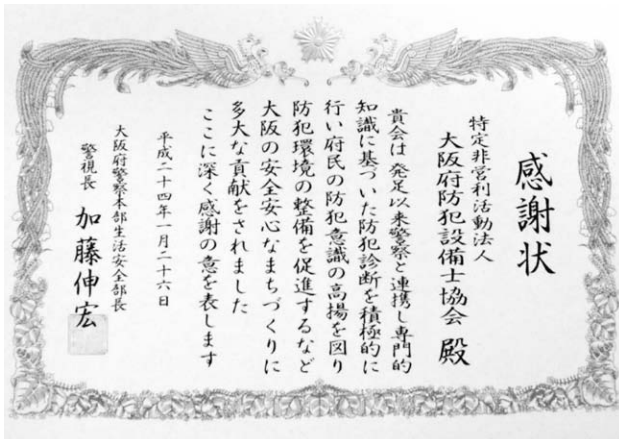 感謝状
特定非営利活動法人
大阪府防犯設備士協会 殿
貴会は発足以来警察と連携し専門的
知識に基づいた防犯診断を積極的に
行い府民の防犯意識の高揚を図り
防犯環境の整備を促進するなど
大阪の安全安心なまちづくりに
多大な貢献をされました
ここに深く感謝の意を表します
平成二十四年一月二十六日
大阪府警察本部生活安全部長
警視長 加藤伸宏